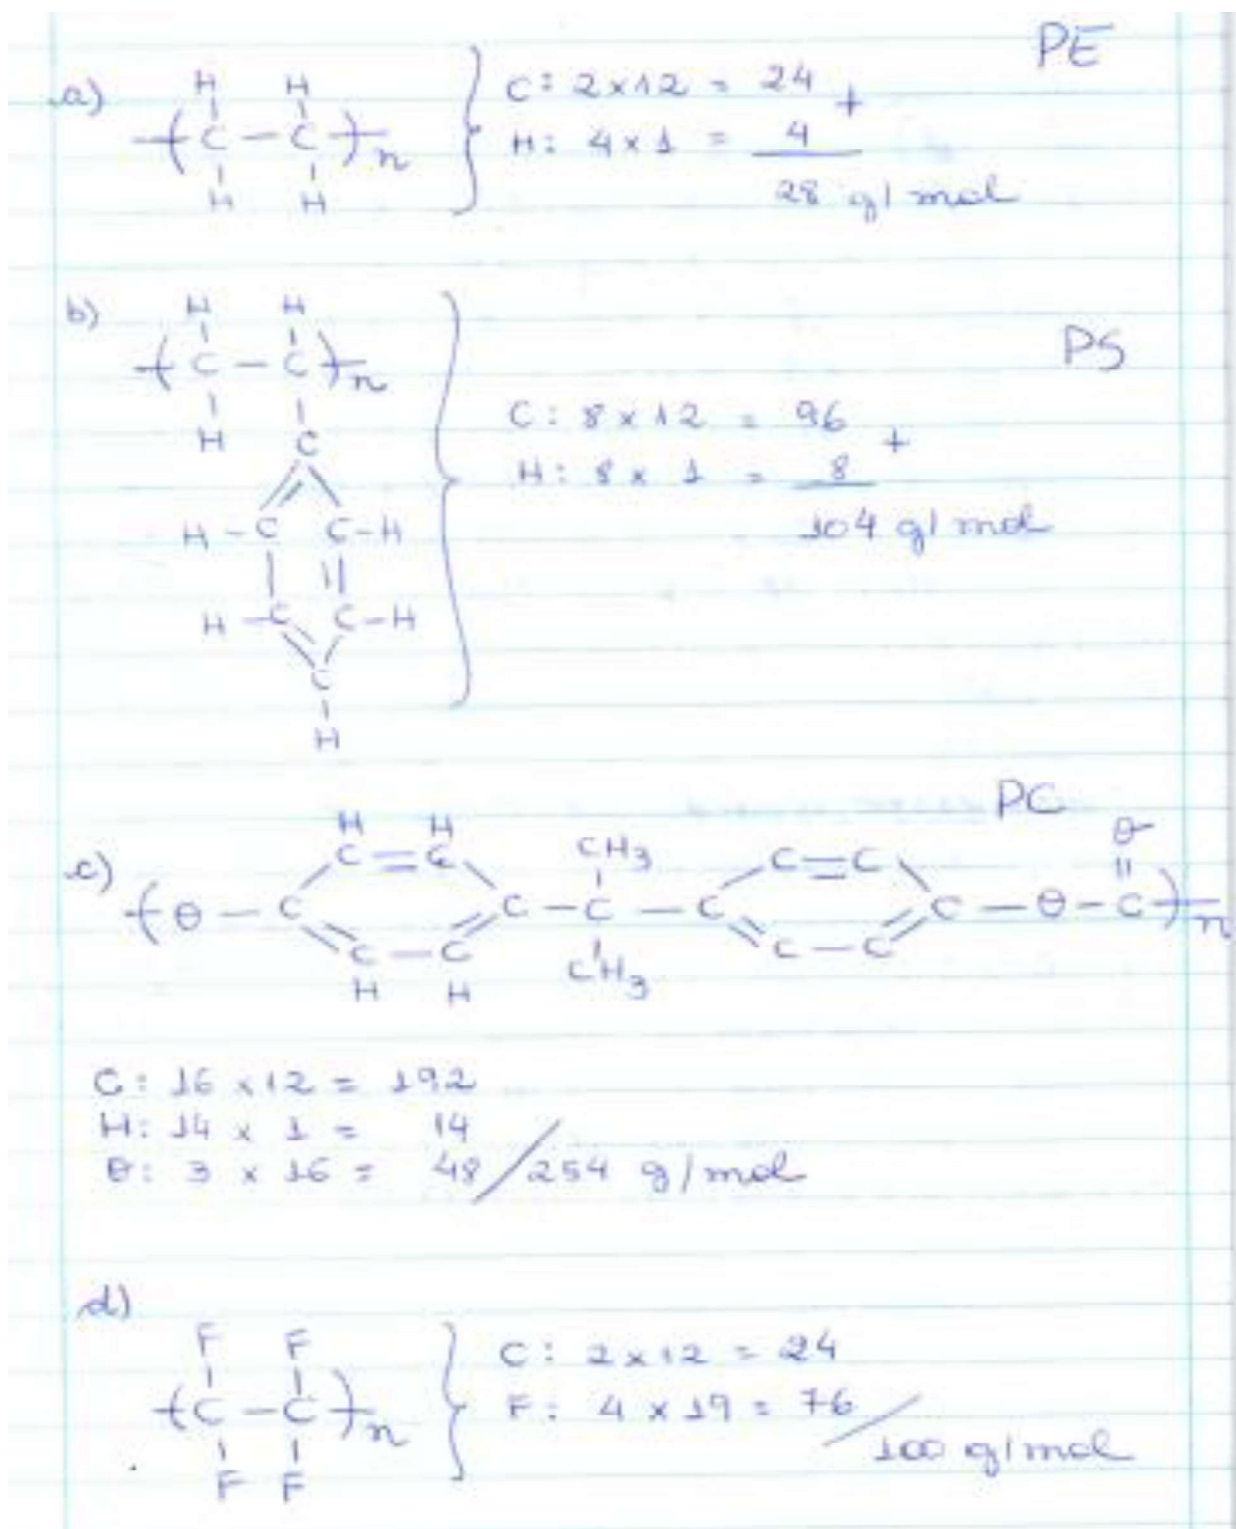 PE
a) H H
-( C - C )-n
H H
C: 2x12 = 24 +
H: 4 x 1 = 4
28 g/mol
b) H H
-( C - C )-n
H C
H - C C-H
H - C C-H
C
H
PS
C: 8 x 12 = 96 +
H: 8 x 1 = 8
104 g/mol
PC
c) H H CH3 O
C=C C=C
-( O - C C - C - C C - O - C )-n
C - C CH3 C - C
H H
C: 16 x 12 = 192
H: 14 x 1 = 14
O: 3 x 16 = 48 / 254 g/mol
d)
F F
-( C - C )-n
F F
C: 2 x 12 = 24
F: 4 x 19 = 76 /
100 g/mol